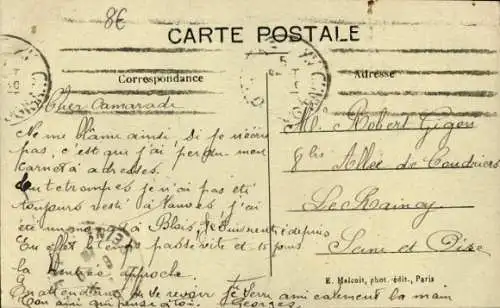 8€
CARTE POSTALE
Correspondance
Adresse
Cher Camarade
Ne me blâme ainsi si je n'écris
pas, c'est que j'ai perdu mon
carnet à adresses.
tu te trompes je n'ai pas été
toujours resté à Vanves j'ai
été à Blois, je suis rentré depuis
En effet le temps passe vite et
la rentrée approche.
En attendant de te revoir je serre amicalement la main
Ton ami qui pense à toi. Georges.
M. Robert Gigon
8 bis Allée de Coudriers
Le Raincy
Seine et Oise
E. Malcuit, phot.-édit., Paris